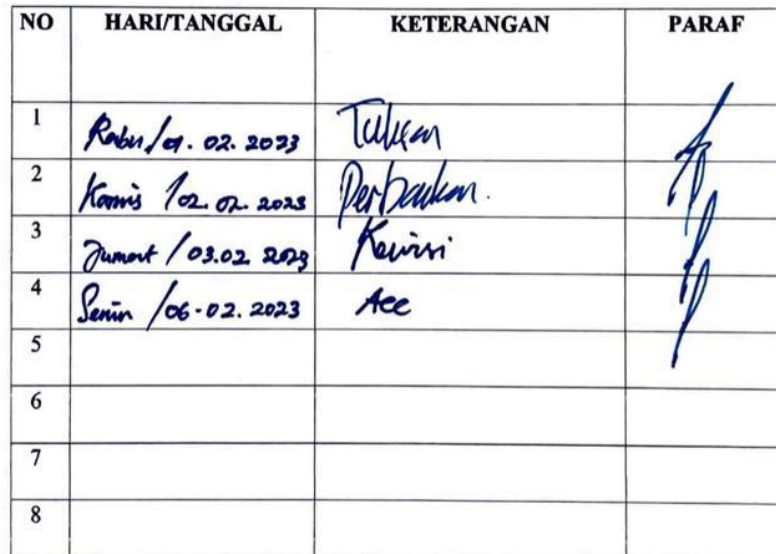 NO HARI/TANGGAL KETERANGAN PARAF
1 Rabu / 01.02.2023
2 Kamis / 02.02.2023 Perbaikan.
3 Jumat / 03.02.2023 Revisi
4 Senin / 06-02.2023 Acc
5
6
7
8